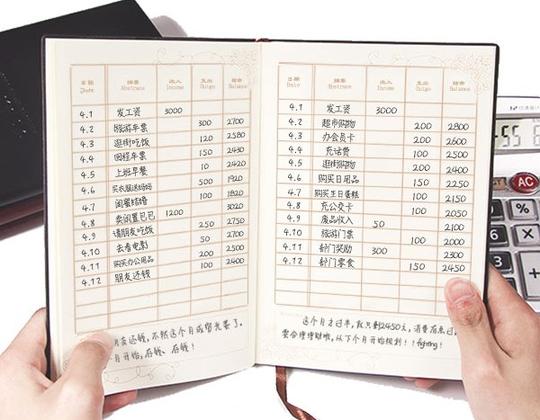 日期 摘要 收入 支出 结余
Date Abstract Income Outgo Balance
4.1 发工资 3000
4.2 旅游车票 300 2700
4.3 逛街吃饭 120 2580
4.4 回程车票 150 2430
4.5 上班早餐 10 2420
4.6 买衣服送妈妈 500 1920
4.7 闺蜜结婚 100 1820
4.8 卖闲置包包 1200 3020
4.9 请朋友吃饭 250 2750
4.10 去看电影 50 2700
4.11 购买办公用品 200 2500
4.12 朋友还钱 100 2400
友还钱,不然这个月成穷光蛋了。
月开始,存钱、存钱!
日期 摘要 收入 支出 结余
Date Abstract Income Outgo Balance
4.1 发工资 3000
4.2 超市购物 200 2800
4.3 办会员卡 200 2600
4.4 充话费 100 2500
4.5 逛街购物 200 2400
4.6 购买日用品 150 2250
4.7 购买生日蛋糕 100 2150
4.8 充公交卡 100 2050
4.9 废品收入 50 2100
4.10 旅游门票 100 2000
4.11 部门奖励 300 2300
4.12 部门零食 150 2450
这个月才过半,就只剩2450元,消费有点过,
要合理理财啦,从下个月开始规划!!fighting!
AC
%